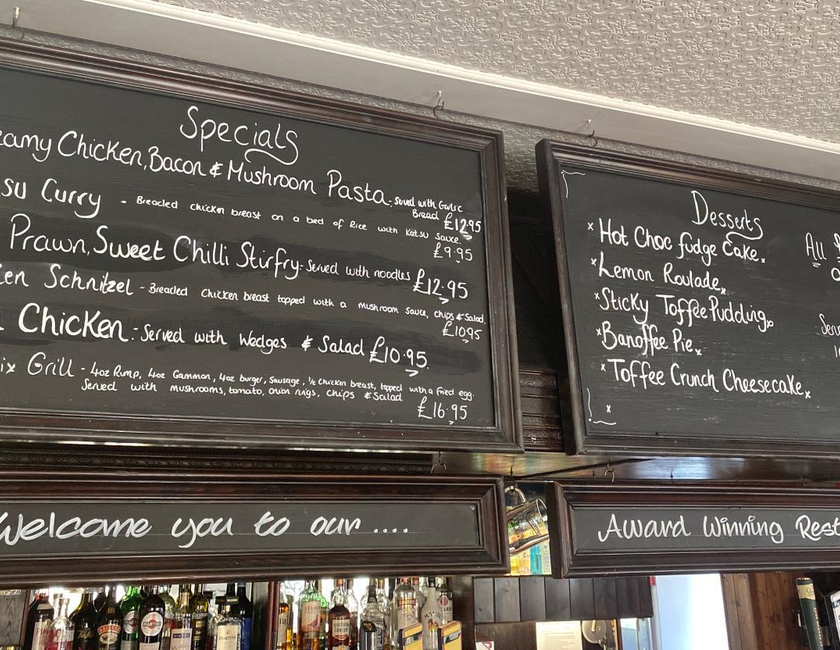 Specials
eamy Chicken, Bacon & Mushroom Pasta - served with Garlic
Bread £12.95
su Curry - Breaded chicken breast on a bed of Rice with Katsu sauce.
£9.95
Prawn, Sweet Chilli Stirfry - Served with noodles £12.95
ken Schnitzel - Breaded Chicken breast topped with a mushroom sauce, chips & salad
£10.95
Chicken - Served with Wedges & Salad £10.95
ix Grill - 4oz Rump, 4oz Gammon, 4oz burger, Sausage, ½ Chicken breast, topped with a fried egg.
Served with mushrooms, tomato, onion rings, chips & Salad
£16.95
Desserts
x Hot Choc fudge Cake x
x Lemon Roulade x
x Sticky Toffee Pudding x
x Banoffee Pie x
x Toffee Crunch Cheesecake x
x
All
Welcome you to our ....
Award Winning Rest